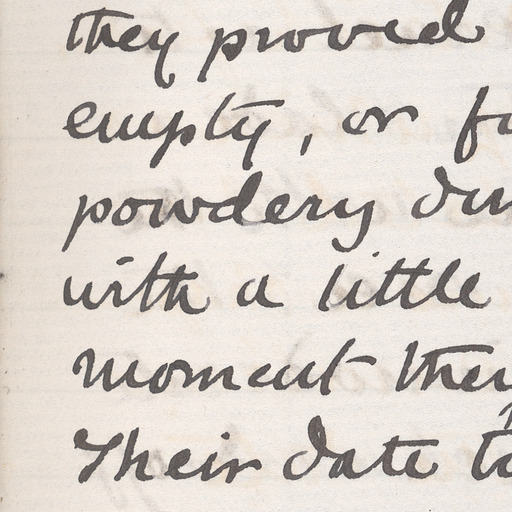 they proved
empty, or
powdery
with a little
moment they
Their date